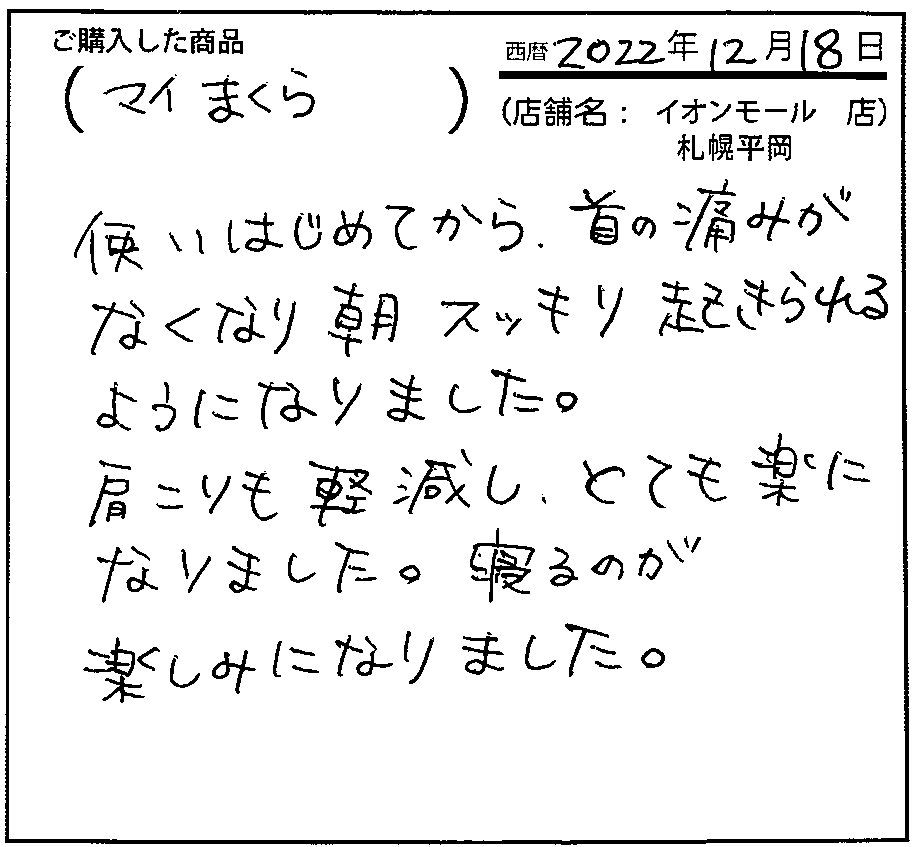 ご購入した商品
(マイまくら)
西暦2022年12月18日
(店舗名：イオンモール 店)
札幌平岡
使いはじめてから、首の痛みが
なくなり朝スッキリ起きられる
ようになりました。
肩こりも軽減し、とても楽に
なりました。寝るのが
楽しみになりました。